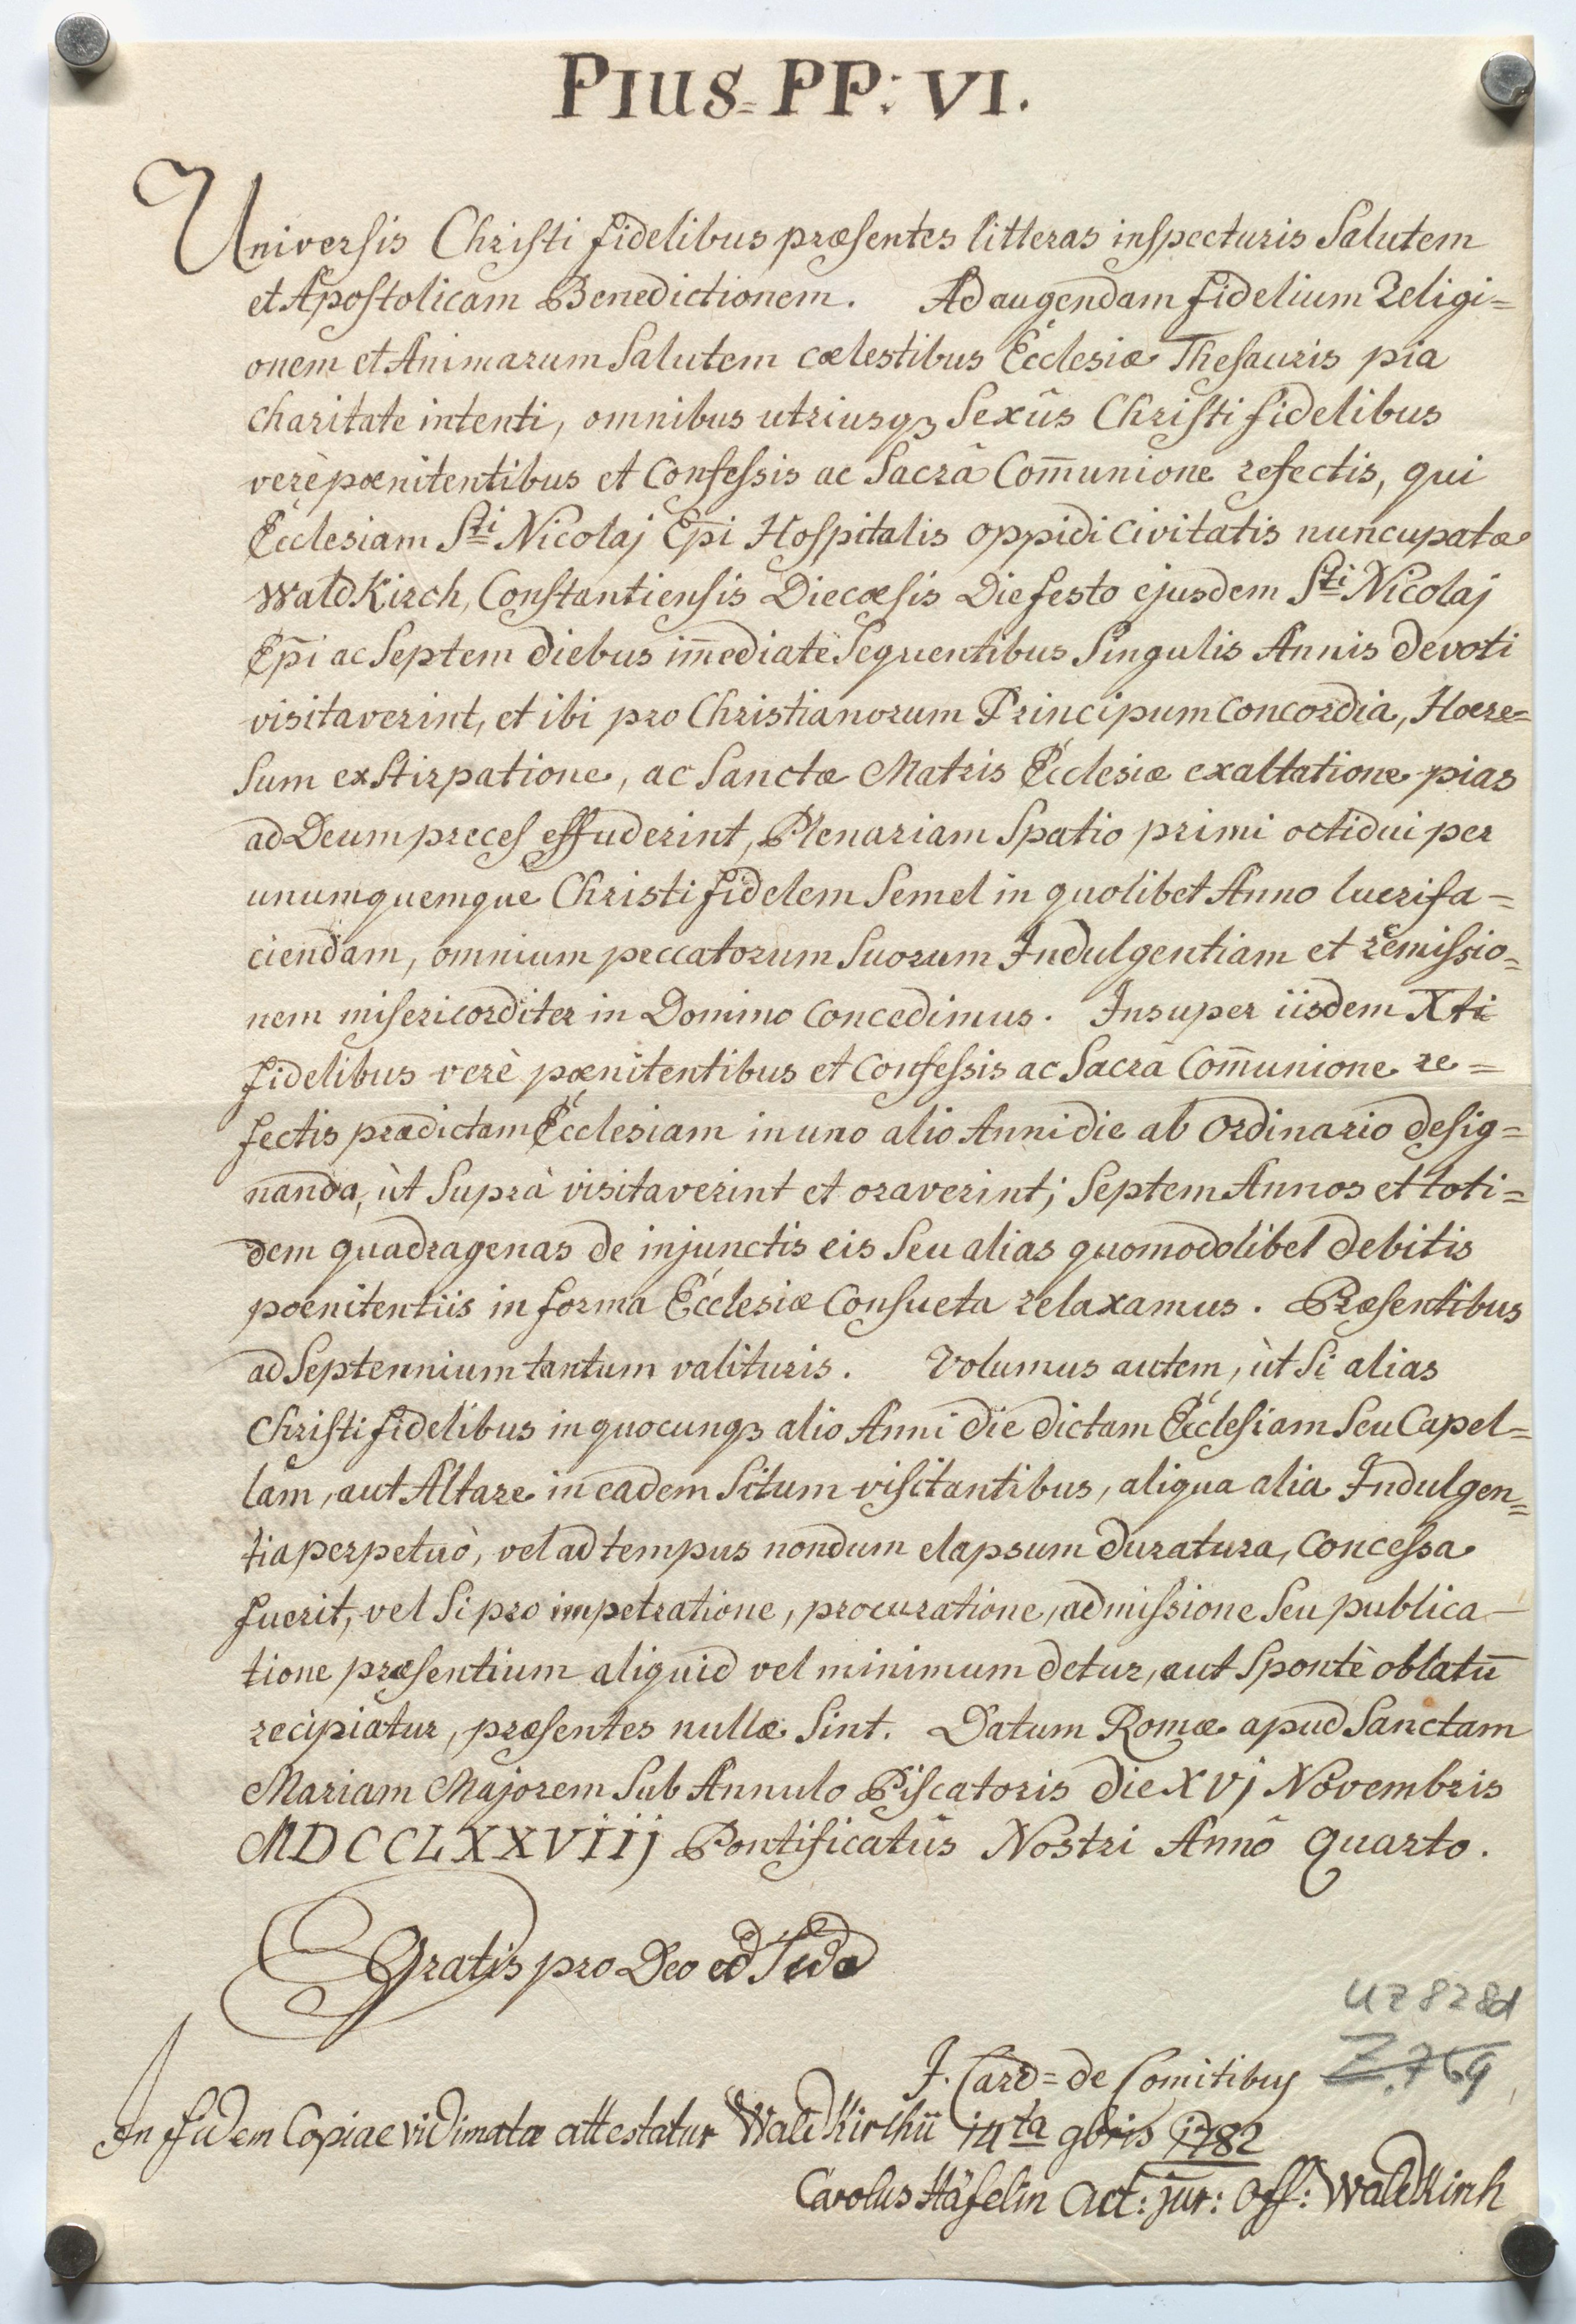 Pius PP: VI.
Universis Christi fidelibus præsentes litteras inspecturis Salutem
et Apostolicam Benedictionem. Ad augendam fidelium Religi=
onem et Animarum Salutem cælestibus Ecclesiæ Thesauris pia
charitate intenti, omnibus utriusqз Sexûs Christi fidelibus
verè pœnitentibus et Confessis ac Sacrâ Com̄unione refectis, qui
Ecclesiam Sti Nicolaj Ep̄i Hospitalis oppidi Civitatis nuncupatæ
WaldKirch, Constantiensis Diecœsis Die festo ejusdem Sti Nicolaj
Ep̄i ac Septem diebus im̄ediate Sequentibus Singulis Annis devoti
visitaverint, et ibi pro Christianorum Principum Concordia, Hœre=
sum exstirpatione, ac Sanctæ Matris Ecclesiæ exaltatione pias
ad Deum preces effuderint, Plenariam Spatio primi octidui per
unumquemque Christi fidelem Semel in quolibet Anno lucrifa=
ciendam, omnium peccatorum Suorum Indulgentiam et remissio=
nem misericorditer in Domino Concedimus. Insuper iisdem Xti
fidelibus verè pœnitentibus et Confessis ac Sacrâ Com̄unione re=
fectis prædictam Ecclesiam in uno alio Anni die ab Ordinario desig=
nanda, ùt Suprà visitaverint et oraverint; Septem Annos et toti=
dem quadragenas de injunctis eis Seu alias quomodolibet debitis
pœnitentiis in forma Ecclesiæ Consueta relaxamus. Præsentibus
ad Septennium tantum valituris. Volumus autem, ùt Si alias
Christi fidelibus in quocunqз alio Anni die dictam Ecclesiam Seu Capel=
lam, aut Altare in eadem Situm visitantibus, aliqua alia Indulgen=
tia perpetuò, vel ad tempus nondum elapsum duratura, Concessa
fuerit, vel Si pro impetratione, procuratione, admissione Seu publica-
tione præsentium aliquid vel minimum detur, aut Spontè oblatū
recipiatur, præsentes nullæ Sint. Datum Romæ apud Sanctam
Mariam Majorem Sub Annulo Piscatoris die XVj Novembris
MDCCLXXViij Pontificatûs Nostri Annô Quarto.
Gratis pro Deo ed Sede
UZ 828d
Z. 769
J. Card= de Comitibus
In fidem Copiae vidimatæ attestatur WaldKirchii 14ta 9bris 1782
Carolus Häfelin Act: jur: Off: WaldKirch